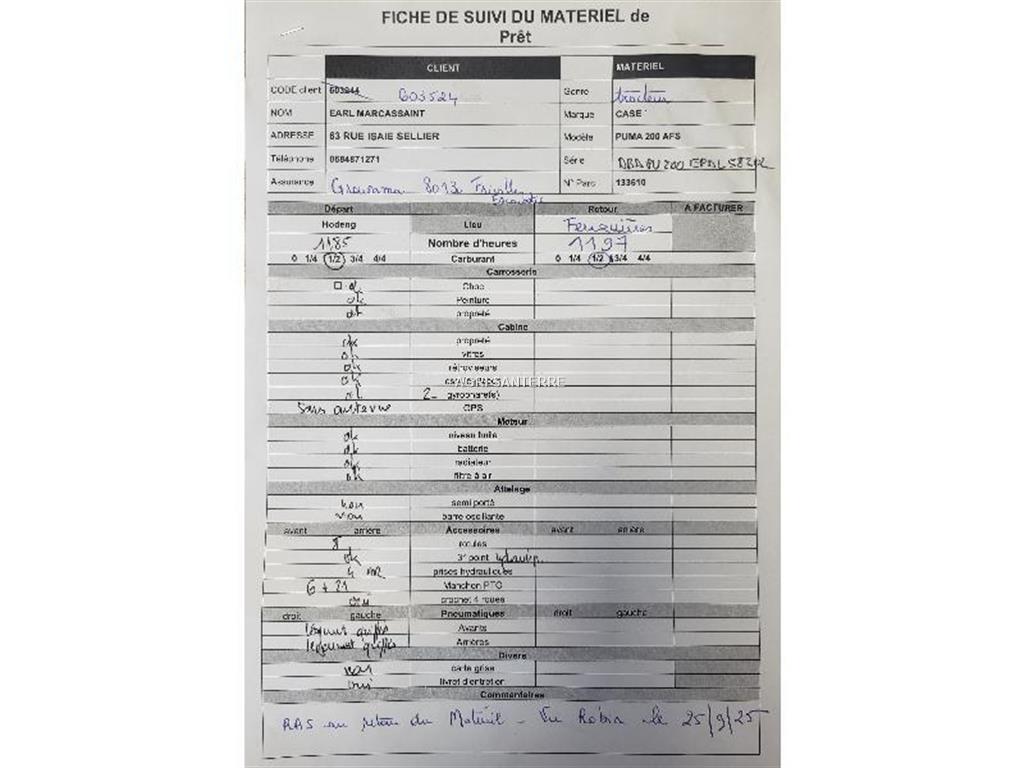 FICHE DE SUIVI DU MATERIEL de
Prêt
CLIENT MATERIEL
CODE client 603524 Genre tracteur
NOM EARL MARCASSAINT Marque CASE
ADRESSE 63 RUE ISAIE SELLIER Modèle PUMA 200 AFS
Téléphone 0684871271 Série
Assurance N° Parc 133610
Départ Retour A FACTURER
Hodeng Lieu Feuquières
1185 Nombre d'heures 1197
0 1/4 1/2 3/4 4/4 Carburant 0 1/4 1/2 3/4 4/4
Carrosserie
ok Choc
ok Peinture
ok propreté
Cabine
ok propreté
ok vitres
ok rétroviseurs
ok
ok 2 gyrophare(s)
Sans antenne GPS
AGRISANTERRE
Moteur
ok niveau huile
ok batterie
ok radiateur
ok filtre à air
Attelage
non semi porté
non barre oscillante
avant arrière Accessoires avant arrière
rotules
ok 3° point
4 prises hydrauliques
6 + 21 Manchon PTO
crochet 4 roues
droit gauche Pneumatiques droit gauche
légèrement griffés Avants
légèrement griffés Arrières
Divers
non carte grise
oui livret d'entretien
Commentaires
RAS au retour du Matériel - Vu Robin le 25/9/25